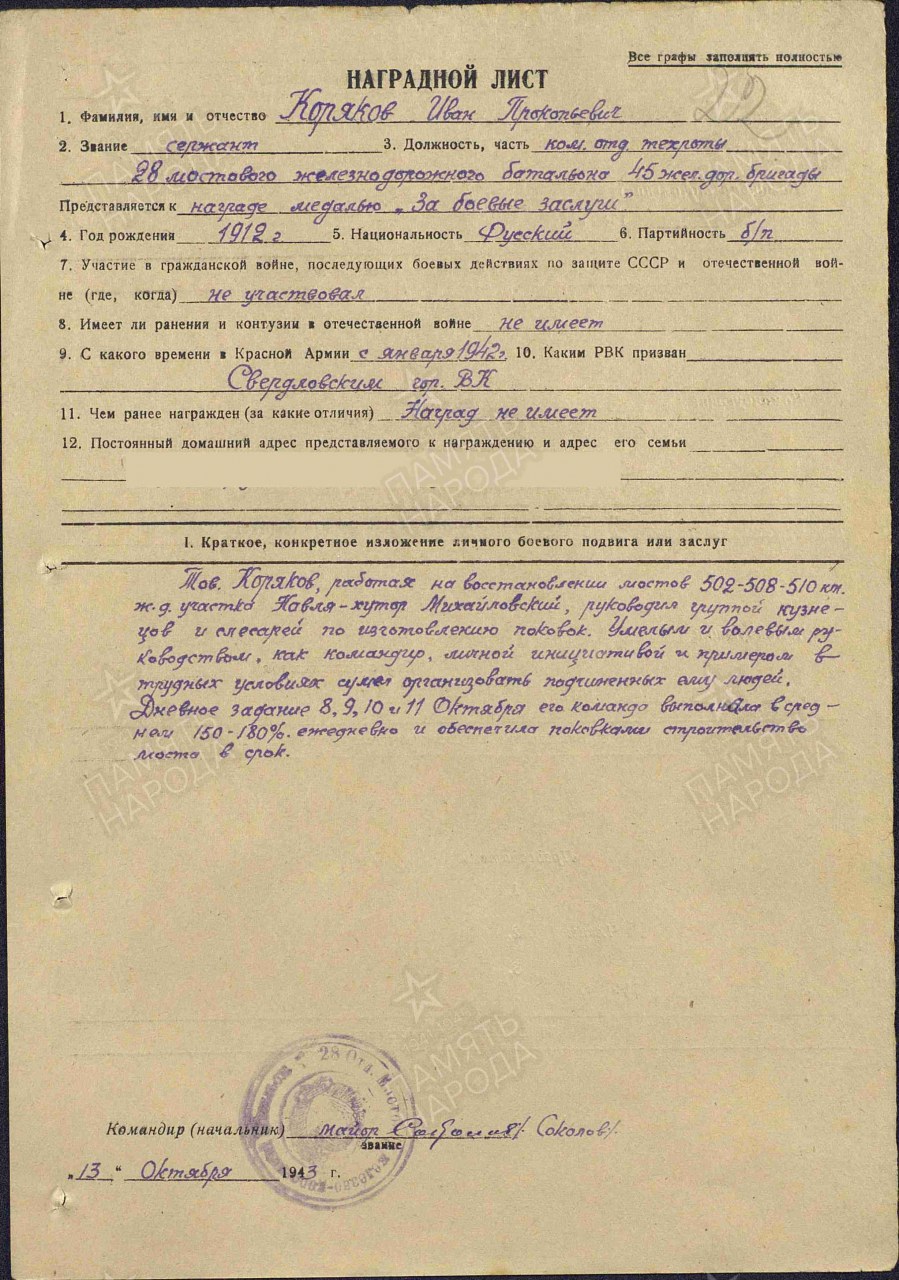 Все графы заполнять полностью
НАГРАДНОЙ ЛИСТ
292
1. Фамилия, имя и отчество Коряков Иван Прокопьевич
2. Звание сержант 3. Должность, часть ком. отд. техроты
28 мостового железнодорожного батальона 45 жел. дор. бригады
Представляется к награде медалью „За боевые заслуги"
4. Год рождения 1912 г 5. Национальность Русский 6. Партийность б/п
7. Участие в гражданской войне, последующих боевых действиях по защите СССР и отечественной вой-
не (где, когда) не участвовал
8. Имеет ли ранения и контузии в отечественной войне не имеет
9. С какого времени в Красной Армии с января 1942 г. 10. Каким РВК призван
Свердловским гор. ВК
11. Чем ранее награжден (за какие отличия) Наград не имеет
12. Постоянный домашний адрес представляемого к награждению и адрес его семьи
I. Краткое, конкретное изложение личного боевого подвига или заслуг
Тов. Коряков, работая на восстановлении мостов 502-508-510 км.
ж.д. участка Навля-хутор Михайловский, руководил группой кузне-
цов и слесарей по изготовлению поковок. Умелым и волевым ру-
ководством, как командир, личной инициативой и примером в
трудных условиях сумел организовать подчиненных ему людей.
Дневное задание 8, 9, 10 и 11 Октября его команда выполнила в сред-
нем 150-180%. ежедневно и обеспечила поковками строительство
моста в срок.
ПАМЯТЬ НАРОДА
28 Отд. Мосто
Командир (начальник) майор /Соколов/.
звание
„13" Октября 1943 г.